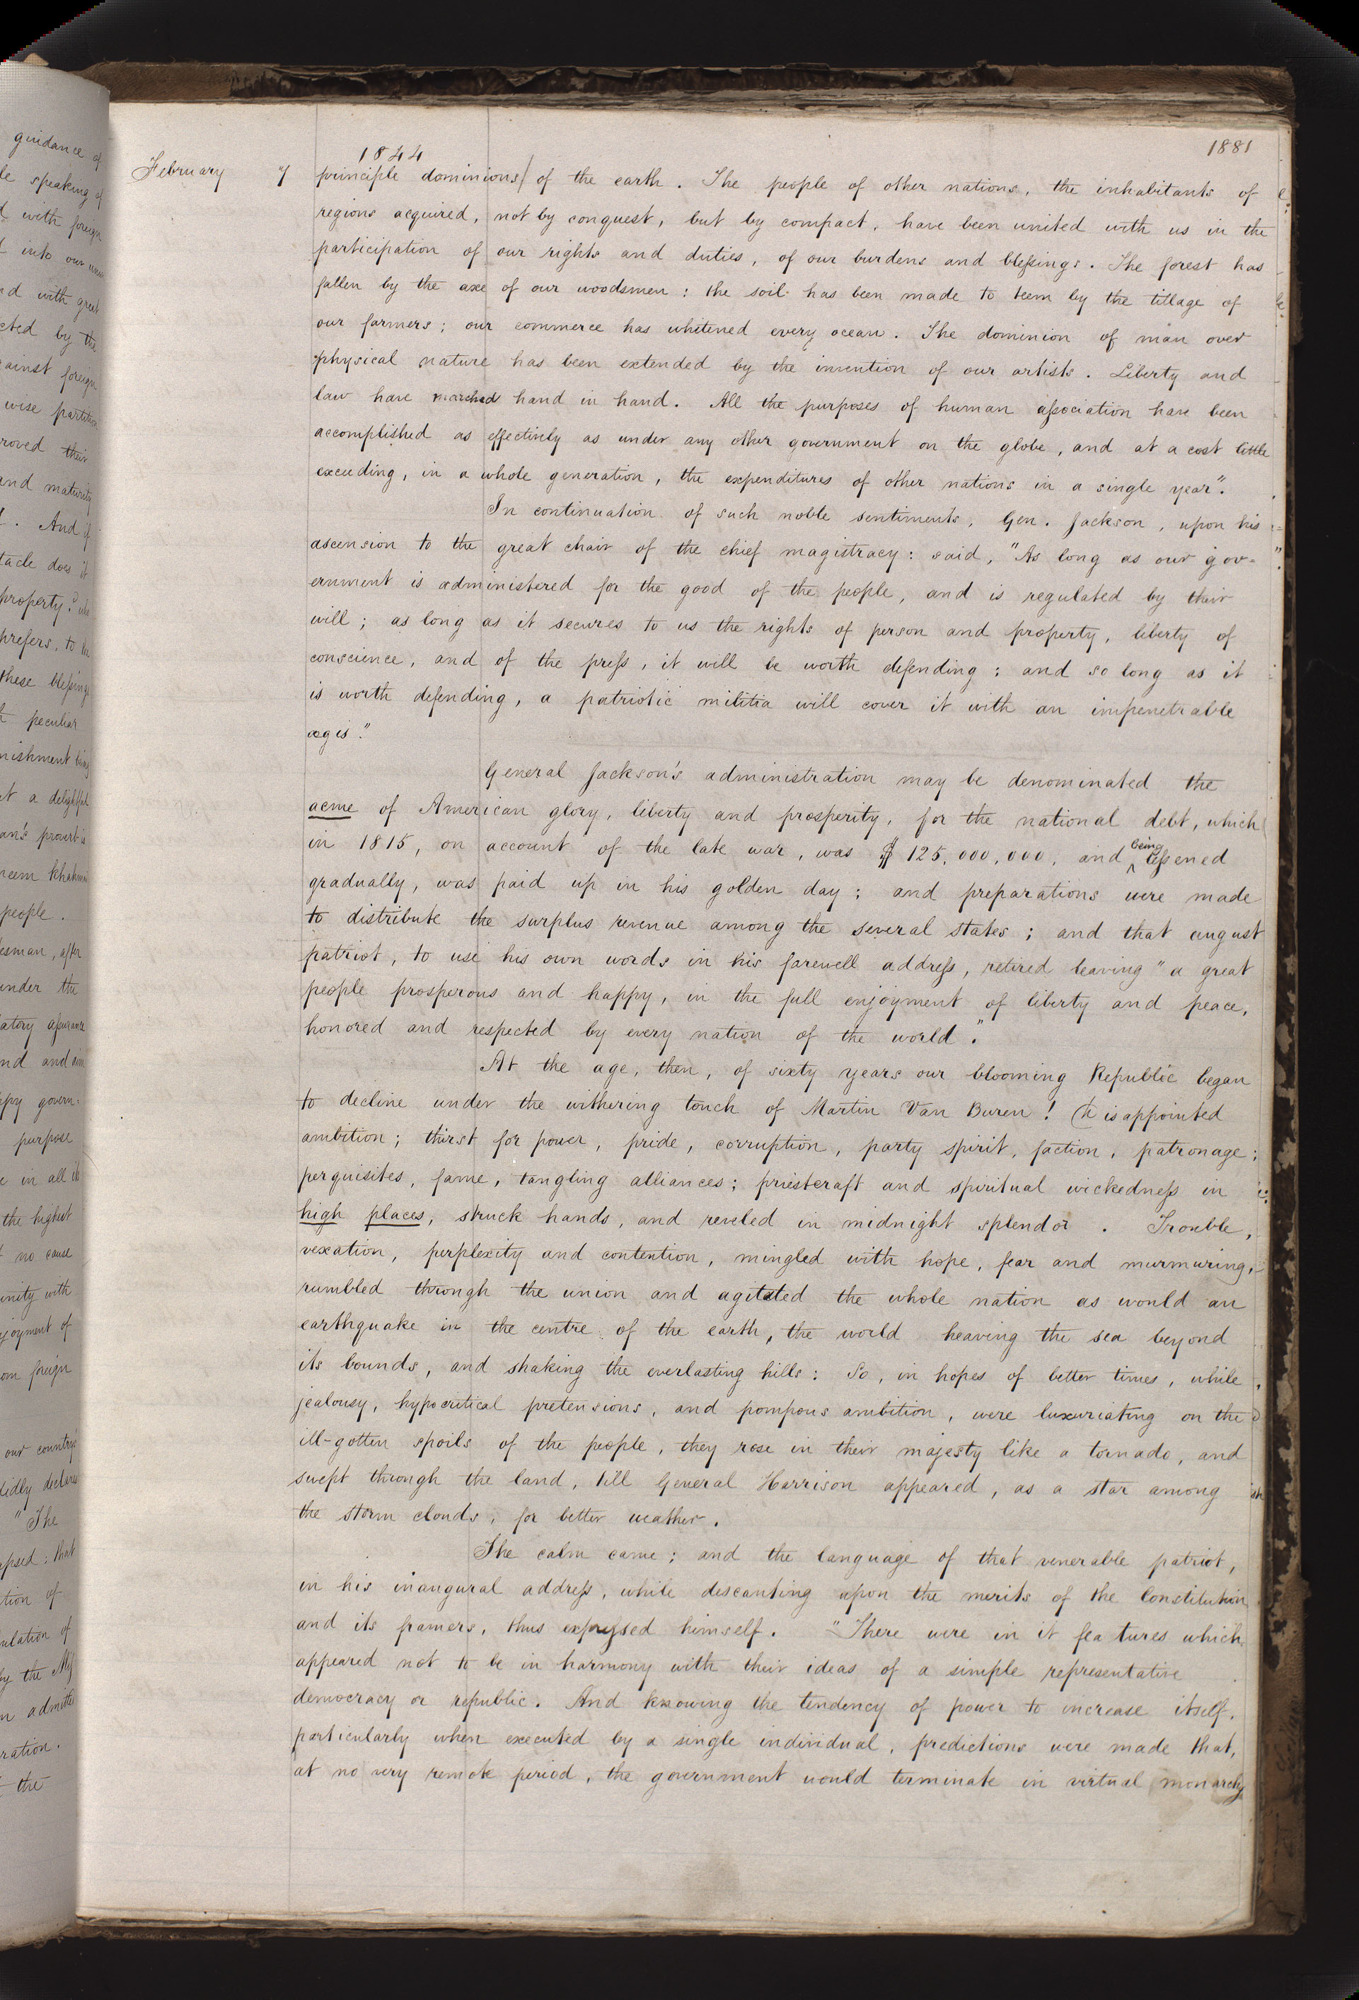 1844
1881
February 7 principle dominions/ of the earth. The people of other nations, the inhabitants of
regions acquired, not by conquest, but by compact, have been united with us in the
participation of our rights and duties, of our burdens and blessings. The forest has
fallen by the axe of our woodsmen: the soil has been made to teem by the tillage of
our farmers; our commerce has whitened every ocean. The dominion of man over
physical nature has been extended by the invention of our artists. Liberty and
law have marched hand in hand. All the purposes of human association have been
accomplished as effectively as under any other government on the globe, and at a cost little
exceeding, in a whole generation, the expenditures of other nations in a single year".
In continuation of such noble sentiments, Gen. Jackson, upon his
ascension to the great chair of the chief magistracy: said, "As long as our gov-
ernment is administered for the good of the people, and is regulated by their
will; as long as it secures to us the rights of person and property, liberty of
conscience, and of the press, it will be worth defending; and so long as it
is worth defending, a patriotic militia will cover it with an impenetrable
ægis."
General Jackson's administration may be denominated the
acme of American glory, liberty and prosperity, for the national debt, which
in 1815, on account of the late war, was $125,000,000, and being lessened
gradually, was paid up in his golden day; and preparations were made
to distribute the surplus revenue among the several states; and that august
patriot, to use his own words in his farewell address, retired leaving "a great
people prosperous and happy, in the full enjoyment of liberty and peace,
honored and respected by every nation of the world."
At the age, then, of sixty years our blooming Republic began
to decline under the withering touch of Martin Van Buren! Disappointed
ambition; thirst for power, pride, corruption, party spirit, faction, patronage;
perquisites, fame, tangling alliances; priestcraft and spiritual wickedness in
high places, struck hands, and reveled in midnight splendor. Trouble,
vexation, perplexity and contention, mingled with hope, fear and murmuring,
rumbled through the union and agitated the whole nation as would an
earthquake in the centre of the earth, the world heaving the sea beyond
its bounds, and shaking the everlasting hills: So, in hopes of better times, while
jealousy, hypocritical pretensions, and pompous ambition, were luxuriating on the
ill-gotten spoils of the people, they rose in their majesty like a tornado, and
swept through the land, till General Harrison appeared, as a star among
the storm clouds, for better weather.
The calm came; and the language of that venerable patriot,
in his inaugural address, while descanting upon the merits of the Constitution
and its framers, thus expressed himself. "There were in it features which
appeared not to be in harmony with their ideas of a simple representative
democracy or republic. And knowing the tendency of power to increase itself,
particularly when executed by a single individual, predictions were made that,
at no very remote period, the government would terminate in virtual monarchy